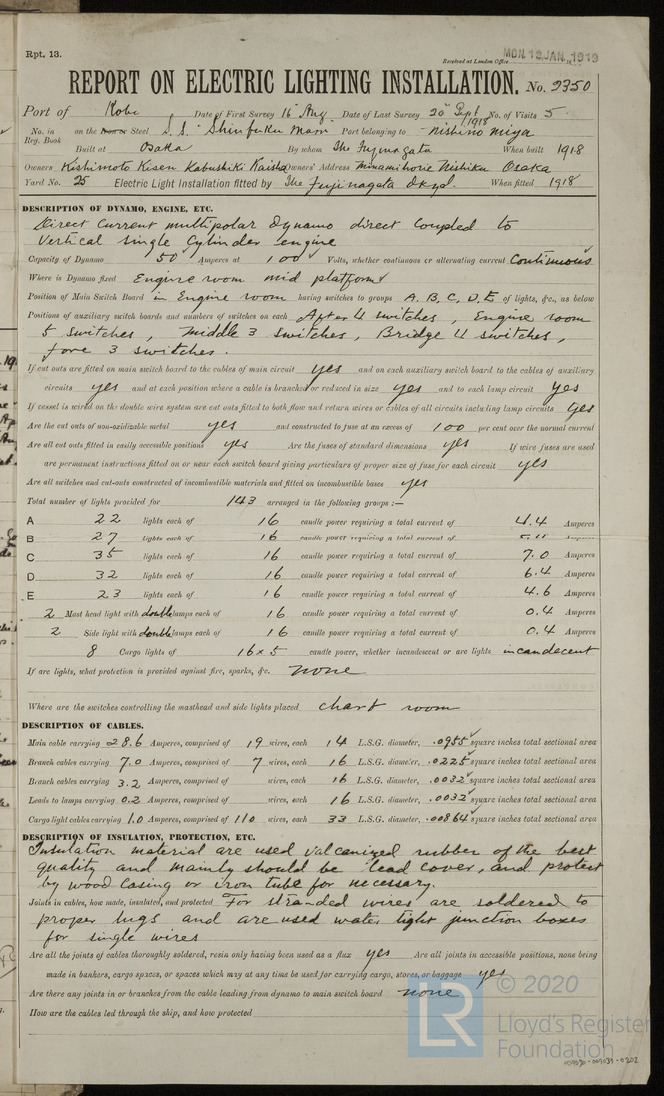 Rpt. 13.
Received at London Office MON. 13 JAN. 1919
REPORT ON ELECTRIC LIGHTING INSTALLATION. No. 9350
Port of Kobe Date of First Survey 16 Aug Date of Last Survey 20 Sept 1918 No. of Visits 5
No. in Reg. Book on the Iron or Steel S.S. Shinfuku Maru Port belonging to Nishino miya
Built at Osaka By whom The Fujinagata When built 1918
Owners Kishimoto Kisen Kabushiki Kaisha Owners' Address Minamihorie Nishiku Osaka
Yard No. 25 Electric Light Installation fitted by The Fujinagata Dkyd. When fitted 1918
DESCRIPTION OF DYNAMO, ENGINE, ETC.
Direct Current multipolar dynamo direct Coupled to
Vertical single Cylinder engine
Capacity of Dynamo 50 Amperes at 100 Volts, whether continuous or alternating current Continuous
Where is Dynamo fixed Engine room mid platform
Position of Main Switch Board in Engine room having switches to groups A. B. C. D. E of lights, &c., as below
Positions of auxiliary switch boards and numbers of switches on each After 4 switches, Engine room
5 switches, middle 3 switches, Bridge 4 switches,
fore 3 switches.
If cut outs are fitted on main switch board to the cables of main circuit yes and on each auxiliary switch board to the cables of auxiliary
circuits yes and at each position where a cable is branched or reduced in size yes and to each lamp circuit yes
If vessel is wired on the double wire system are cut outs fitted to both flow and return wires or cables of all circuits including lamp circuits yes
Are the cut outs of non-oxidizable metal yes and constructed to fuse at an excess of 100 per cent over the normal current
Are all cut outs fitted in easily accessible positions yes Are the fuses of standard dimensions yes If wire fuses are used
are permanent instructions fitted on or near each switch board giving particulars of proper size of fuse for each circuit yes
Are all switches and cut-outs constructed of incombustible materials and fitted on incombustible bases yes
Total number of lights provided for 143 arranged in the following groups :—
A 22 lights each of 16 candle power requiring a total current of 4.4 Amperes
B 27 lights each of 16 candle power requiring a total current of Amperes
C 35 lights each of 16 candle power requiring a total current of 7.0 Amperes
D 32 lights each of 16 candle power requiring a total current of 6.4 Amperes
E 23 lights each of 16 candle power requiring a total current of 4.6 Amperes
2 Mast head light with double lamps each of 16 candle power requiring a total current of 0.4 Amperes
2 Side light with double lamps each of 16 candle power requiring a total current of 0.4 Amperes
8 Cargo lights of 16 x 5 candle power, whether incandescent or arc lights incandecent
If arc lights, what protection is provided against fire, sparks, &c. none
Where are the switches controlling the masthead and side lights placed chart room
DESCRIPTION OF CABLES.
Main cable carrying 28.6 Amperes, comprised of 19 wires, each 14 L.S.G. diameter, .0955 square inches total sectional area
Branch cables carrying 7.0 Amperes, comprised of 7 wires, each 16 L.S.G. diameter, .0225 square inches total sectional area
Branch cables carrying 3.2 Amperes, comprised of wires, each 16 L.S.G. diameter, .0032 square inches total sectional area
Leads to lamps carrying 0.2 Amperes, comprised of wires, each 16 L.S.G. diameter, .0032 square inches total sectional area
Cargo light cables carrying 1.0 Amperes, comprised of 110 wires, each 33 L.S.G. diameter, .00864 square inches total sectional area
DESCRIPTION OF INSULATION, PROTECTION, ETC.
Insulation material are used valcanized rubber of the best
quality and mainly should be lead cover, and protect
by wood casing or iron tube for necessary.
Joints in cables, how made, insulated, and protected For stranded wires are soldered to
proper lugs and are used water tight junction boxes
for single wires
Are all the joints of cables thoroughly soldered, resin only having been used as a flux yes Are all joints in accessible positions, none being
made in bunkers, cargo spaces, or spaces which may at any time be used for carrying cargo, stores, or baggage yes
Are there any joints in or branches from the cable leading from dynamo to main switch board none
How are the cables led through the ship, and how protected
LR
© 2020
Lloyd's Register
Foundation